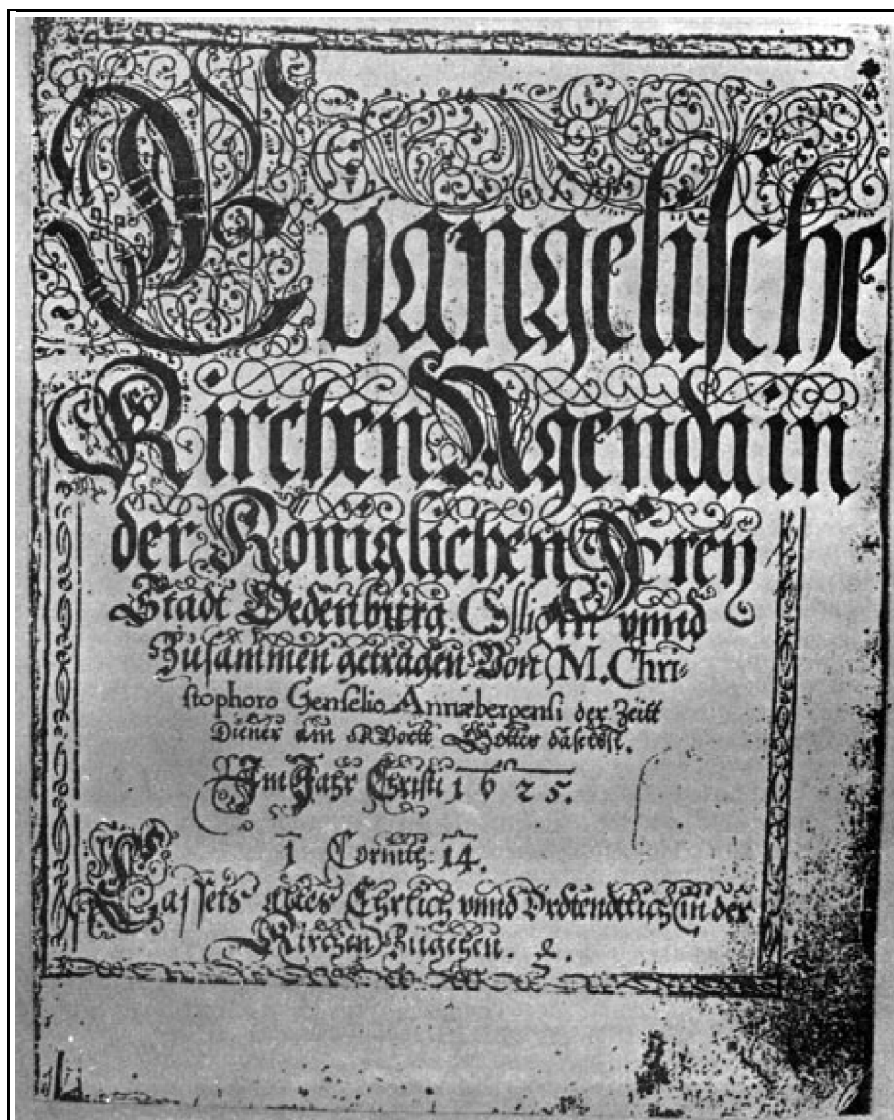 Evangelische
Kirchen Agenda in
der Königlichen Frey
Stadt Oedenburg. vnnd
Zusammen getragen Von M. Chri-
stophoro Genselio Annæbergensi der Zeitt
Diener am Wortt Gottes daselbst.
Im Jahr Christi 1625.
1 Corinth: 14.
Lassets alles Ehrlich vnnd Ordtendtlich in der
Kirchen Zugehen.